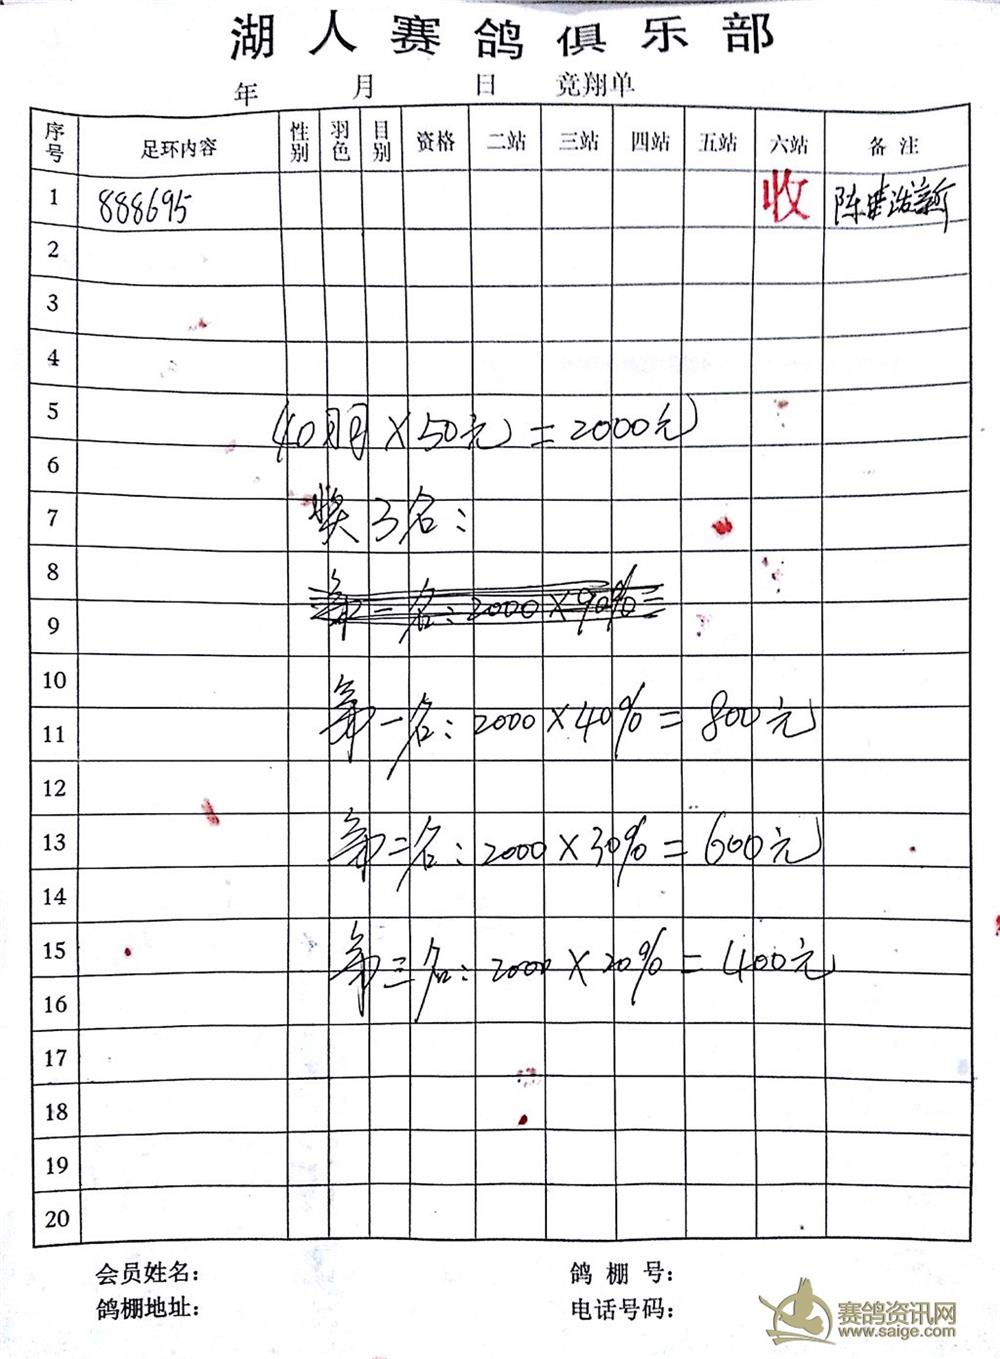 湖人赛鸽俱乐部
年 月 日 竞翔单
序号 足环内容 性别 羽色 目别 资格 二站 三站 四站 五站 六站 备注
1 888695 收 陈
2
3
4
5
40 ×50元=2000元
6
7
奖3名:
8
第三名:2000×90%=
9
10
第一名:2000×40%=800元
11
12
13
第二名:2000×30%=600元
14
15
第三名:2000×20%=400元
16
17
18
19
20
会员姓名: 鸽棚号:
鸽棚地址: 电话号码:
赛鸽资讯网
www.saige.com